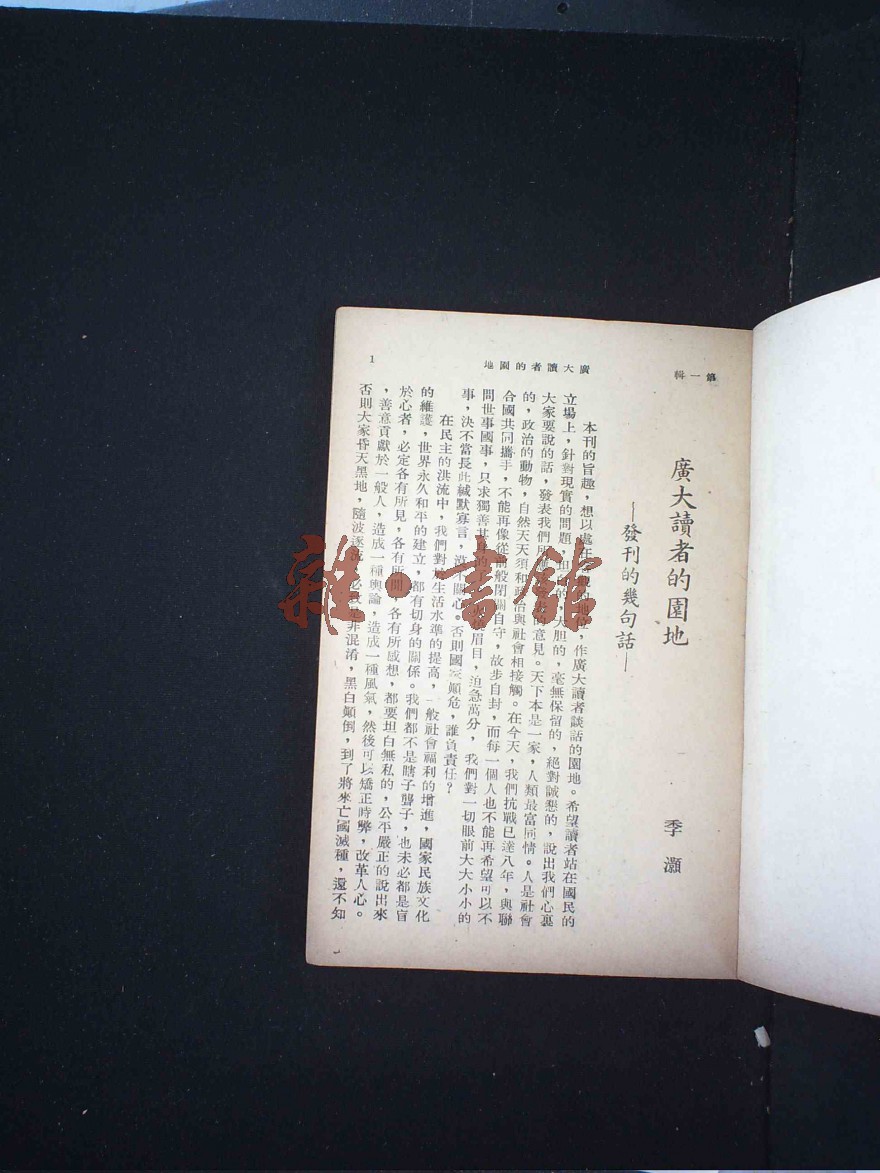 第一輯
廣大讀者的園地
1
廣大讀者的園地
—發刊的幾句話—
季灝
本刊的旨趣,想以處在地位,作廣大讀者談話的園地。希望讀者站在國民的
立場上,針對現實的問題,的,大胆的,毫無保留的,絕對誠懇的,說出我們心裏
大家要說的話,發表我們所的意見。天下本是一家,人類最富同情。人是社會
的,政治的動物,自然天天須和政治與社會相接觸。在今天,我們抗戰已達八年,與聯
合國共同攜手,不能再像從前般閉關自守,故步自封,而每一個人也不能再希望可以不
問世事國事,只求獨善其身的眉目,迫急萬分,我們對一切眼前大大小小的
事,決不當長此緘默寡言,漠不關心。否則國家顚危,誰負責任?
在民主的洪流中,我們對於生活水準的提高,一般社會福利的增進,國家民族文化
的維護,世界永久和平的建立,都有切身的關係。我們都不是瞎子聾子,也未必都是盲
於心者,必定各有所見,各有所聞,各有所感想,都要坦白無私的,公平嚴正的說出來
,善意貢獻於一般人,造成一種輿論,造成一種風氣,然後可以矯正時弊,改革人心。
否則大家昏天黑地,隨波逐流,必致是非混淆,黑白顚倒,到了將來亡國滅種,還不知
雜·書館